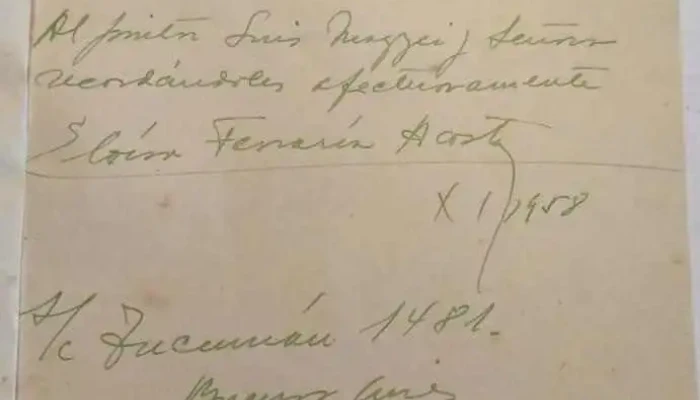 Al pintor Luis Mazzei y Señora
recordándoles afectuosamente
Eloísa Ferraría Acosta
X I 1958
S/c Tucumán 1481.
Buenos Aires